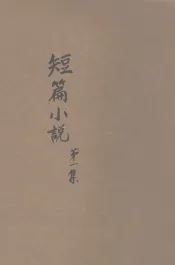 短篇小説
第一集